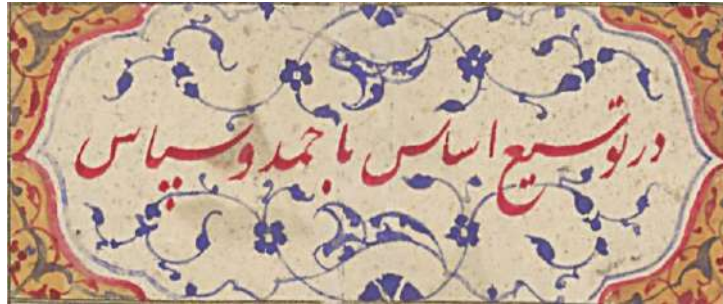 در توسیع اساس با حمد و سپاس